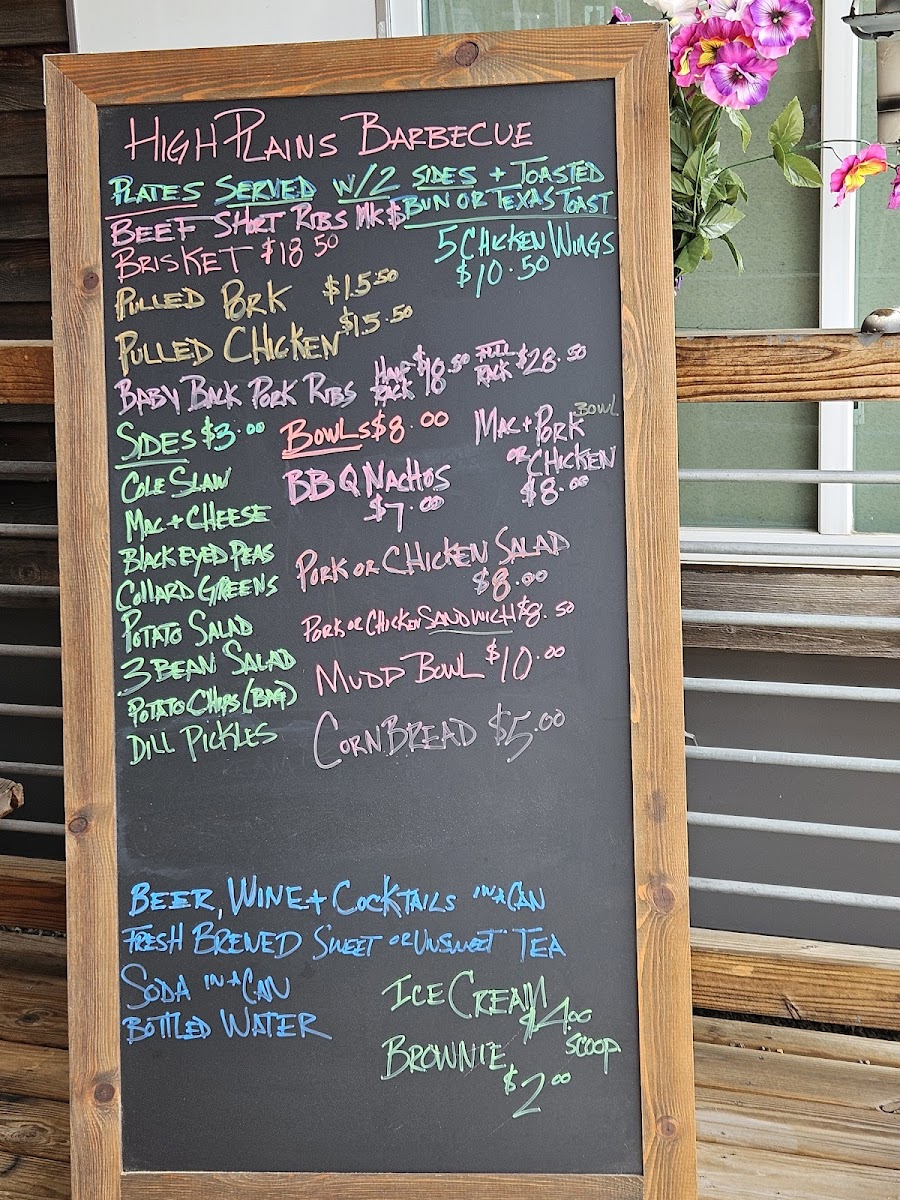 HIGH PLAINS BARBECUE
PLATES SERVED W/2 SIDES + TOASTED
BUN OR TEXAS TOAST
BEEF SHORT RIBS MK $
BRISKET $18.50
5 CHICKEN WINGS
$10.50
PULLED PORK $15.50
PULLED CHICKEN $15.50
BABY BACK PORK RIBS HALF RACK $18.50 FULL RACK $28.50
SIDES $3.00
COLE SLAW
MAC + CHEESE
BLACK EYED PEAS
COLLARD GREENS
POTATO SALAD
3 BEAN SALAD
POTATO CHIPS (BAG)
DILL PICKLES
BOWLS $8.00
MAC + PORK BOWL
OR CHICKEN
$8.00
BBQ NACHOS
$7.00
PORK OR CHICKEN SALAD
$8.00
PORK OR CHICKEN SANDWICH $8.50
MUDD BOWL $10.00
CORNBREAD $5.00
BEER, WINE + COCKTAILS IN A CAN
FRESH BREWED SWEET OR UNSWEET TEA
SODA IN A CAN
BOTTLED WATER
ICE CREAM
$4.00
SCOOP
BROWNIE
$2.00